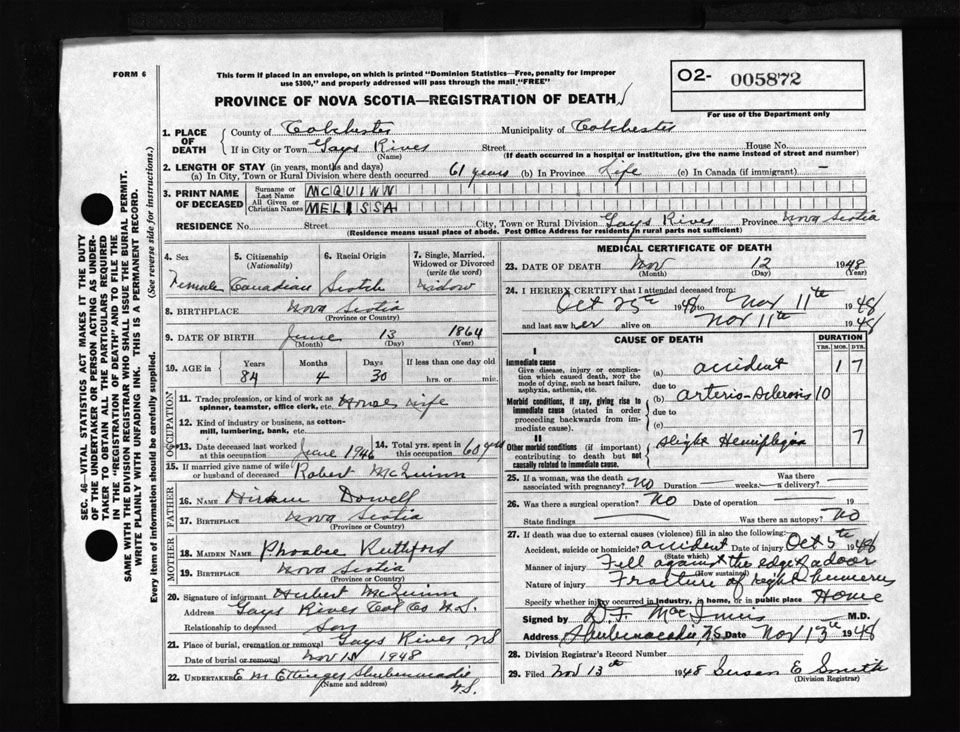 FORM 6
This form if placed in an envelope, on which is printed "Dominion Statistics—Free, penalty for improper
use $300," and properly addressed will pass through the mail "FREE"
O2- 005872
For use of the Department only
PROVINCE OF NOVA SCOTIA—REGISTRATION OF DEATH
SEC. 46—VITAL STATISTICS ACT MAKES IT THE DUTY
OF THE UNDERTAKER OR PERSON ACTING AS UNDER-
TAKER TO OBTAIN ALL THE PARTICULARS REQUIRED
IN THE "REGISTRATION OF DEATH" AND TO FILE THE
SAME WITH THE DIVISION REGISTRAR WHO SHALL ISSUE THE BURIAL PERMIT.
WRITE PLAINLY WITH UNFADING INK. THIS IS A PERMANENT RECORD.
Every item of information should be carefully supplied. (See reverse side for instructions.)
1. PLACE OF DEATH County of Colchester Municipality of Colchester
If in City or Town Gays River Street House No.
(Name) (If death occurred in a hospital or institution, give the name instead of street and number)
2. LENGTH OF STAY (in years, months and days)
(a) In City, Town or Rural Division where death occurred 61 years (b) In Province Life (c) In Canada (if immigrant) —
3. PRINT NAME OF DECEASED Surname or Last Name MCQUINN
All Given or Christian Names MELISSA
RESIDENCE No. Street City, Town or Rural Division Gays River Province Nova Scotia
(Residence means usual place of abode. Post Office Address for residents in rural parts not sufficient)
4. Sex 5. Citizenship (Nationality) 6. Racial Origin 7. Single, Married, Widowed or Divorced (write the word)
Female Canadian Scotch Widow
8. BIRTHPLACE Nova Scotia
(Province or Country)
9. DATE OF BIRTH June 13 1864
(Month) (Day) (Year)
10. AGE in Years Months Days If less than one day old
84 4 30 hrs. or min.
OCCUPATION
11. Trade, profession, or kind of work as spinner, teamster, office clerk, etc. House Wife
12. Kind of industry or business, as cotton-mill, lumbering, bank, etc.
13. Date deceased last worked at this occupation June 1946 14. Total yrs. spent in this occupation 60 yrs
15. If married give name of wife or husband of deceased Robert McQuinn
FATHER
16. NAME Dowell
17. BIRTHPLACE Nova Scotia
(Province or Country)
MOTHER
18. MAIDEN NAME Phoabee Ruthford
19. BIRTHPLACE Nova Scotia
(Province or Country)
20. Signature of informant Hubert McQuinn
Address Gays River Col Co N.S.
Relationship to deceased Son
21. Place of burial, cremation or removal Gays River, NS
Date of burial or removal Nov 1948
22. UNDERTAKER E M Ettinger Shubenacadie
(Name and address) N.S.
MEDICAL CERTIFICATE OF DEATH
23. DATE OF DEATH Nov 12 1948
(Month) (Day) (Year)
24. I HEREBY CERTIFY that I attended deceased from:
Oct 25th 1948 to Nov 11th 1948
and last saw her alive on Nov 11th 1948
CAUSE OF DEATH DURATION
YRS. MOS. DYS.
I
Immediate cause
Give disease, injury or complication which caused death, not the mode of dying, such as heart failure, asphyxia, asthenia, etc.
(a) accident 1 7
due to
Morbid conditions, if any, giving rise to immediate cause (stated in order proceeding backwards from immediate cause).
(b) arterio-sclerosis 10
due to
(c)
II
Other morbid conditions (if important) contributing to death but not causally related to immediate cause.
slight Hemiplegia 7
25. If a woman, was the death associated with pregnancy? NO Duration weeks. Was there a delivery?
26. Was there a surgical operation? NO Date of operation 19
State findings Was there an autopsy? NO
27. If death was due to external causes (violence) fill in also the following:
Accident, suicide or homicide? accident Date of injury Oct 5th 1948
(State which)
Manner of injury Fell against the edge of a door
(How sustained)
Nature of injury Fracture of right humerus
Specify whether injury occurred in industry, in home, or in public place Home
Signed by D.F. MacInnis M.D.
Address Shubenacadie, N.S. Date Nov 13th 1948
28. Division Registrar's Record Number
29. Filed Nov 13th 1948 Susan E Smith
(Division Registrar)